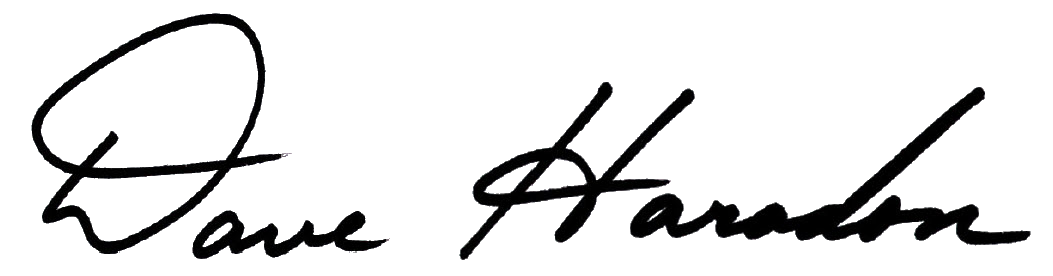 Dave Haradon